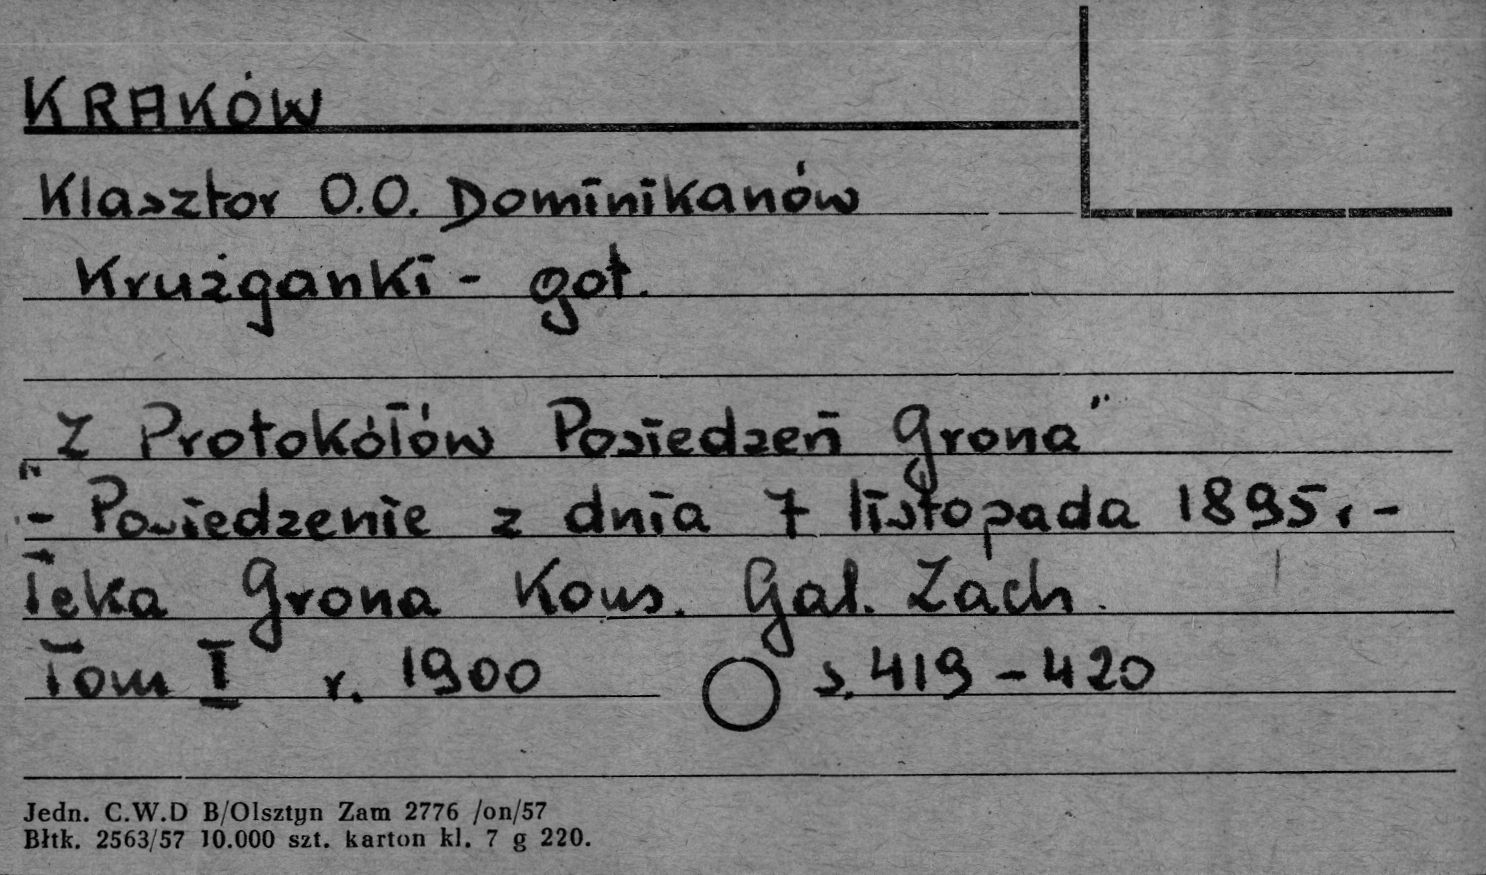 KRAKÓW
Klasztor O.O. Dominikanów
Krużganki - got.
Z Protokółów Posiedzeń Grona"
"- Posiedzenie z dnia 7 listopada 1895. -
Teka Grona Kons. Gal. Zach.
Tom I r. 1900 s. 419-420
Jedn. C.W.D B/Olsztyn Zam 2776 /on/57
Błtk. 2563/57 10.000 szt. karton kl. 7 g 220.